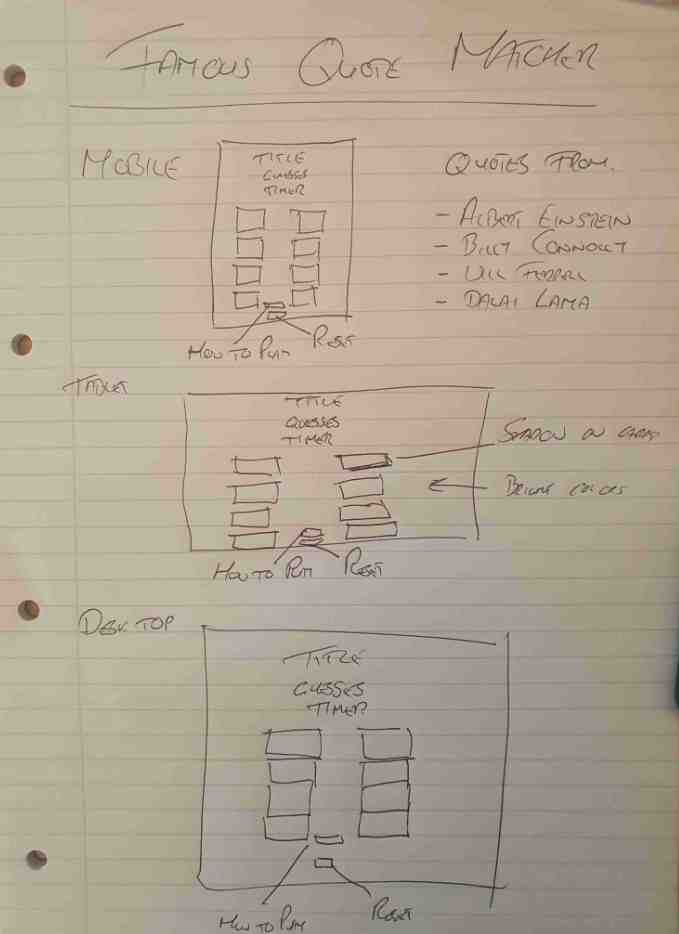 FAMOUS QUOTE MATCHER
MOBILE
TITLE
GUESSES
TIMER
HOW TO PLAY
RESET
QUOTES FROM.
- ALBERT EINSTEIN
- BILLY CONNOLLY
- WILL FERRELL
- DALAI LAMA
TABLET
TITLE
GUESSES
TIMER
SHADOW ON CARDS
BRIGHT COLORS
HOW TO PLAY
RESET
DESKTOP
TITLE
GUESSES
TIMER
HOW TO PLAY
RESET